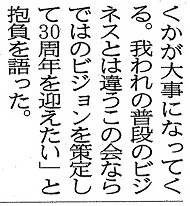 くかが大事になってく
る。我われの普段のビジ
ネスとは違うこの会なら
ではのビジョンを策定し
て30周年を迎えたい」と
抱負を語った。